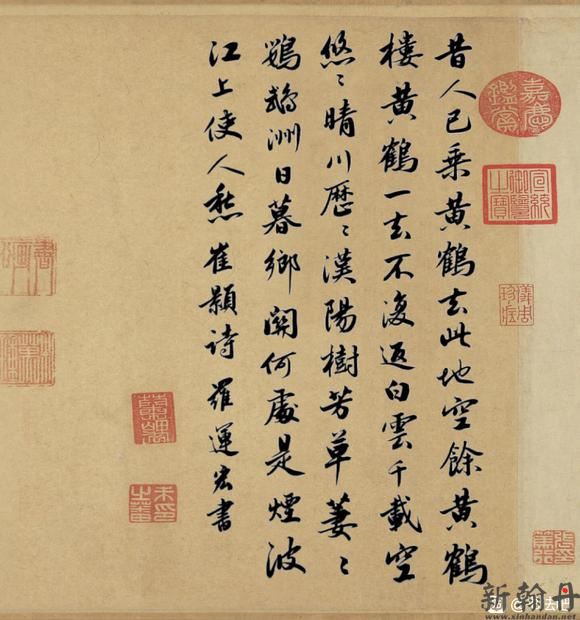 昔人已乘黄鶴去此地空餘黄鶴
樓黄鶴一去不復返白雲千載空
悠〻晴川歷〻漢陽樹芳草萋〻
鸚鵡洲日暮鄉關何處是煙波
江上使人愁 崔顥詩 羅運宏書
嘉慶鑑賞
宣統御覽之寶
儀周珍藏
新翰丹
www.xinhandan.net